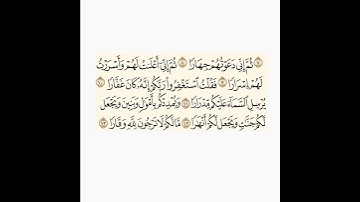 ۝٧ ثُمَّ إِنِّى دَعَوْتُهُمْ جِهَارًا ۝٨ ثُمَّ إِنِّىٓ أَعْلَنتُ لَهُمْ وَأَسْرَرْتُ
لَهُمْ إِسْرَارًا ۝٩ فَقُلْتُ ٱسْتَغْفِرُوا۟ رَبَّكُمْ إِنَّهُۥ كَانَ غَفَّارًا ۝١٠
يُرْسِلِ ٱلسَّمَآءَ عَلَيْكُم مِّدْرَارًا ۝١١ وَيُمْدِدْكُم بِأَمْوَٰلٍ وَبَنِينَ وَيَجْعَل
لَّكُمْ جَنَّٰتٍ وَيَجْعَل لَّكُمْ أَنْهَٰرًا ۝١٢ مَّا لَكُمْ لَا تَرْجُونَ لِلَّهِ وَقَارًا ۝١٣